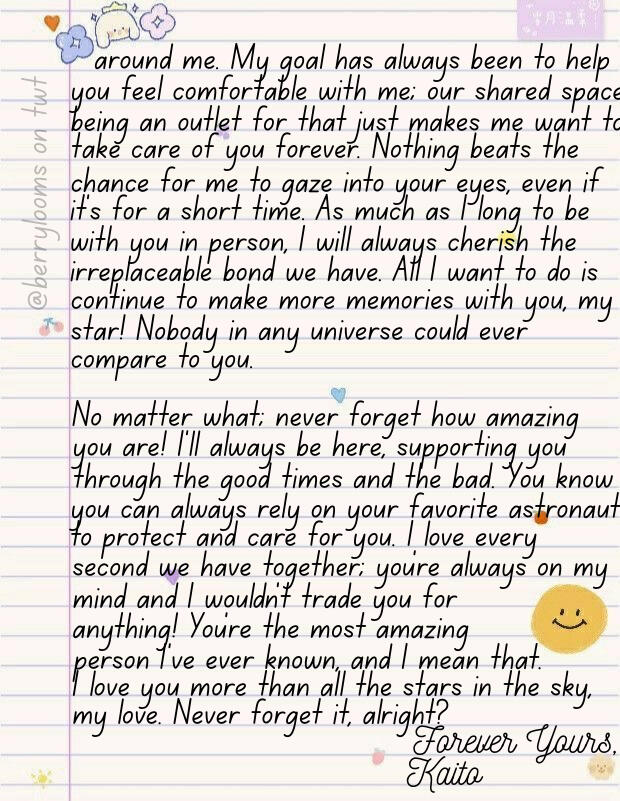 around me. My goal has always been to help
you feel comfortable with me; our shared space
being an outlet for that just makes me want to
take care of you forever. Nothing beats the
chance for me to gaze into your eyes, even if
it's for a short time. As much as I long to be
with you in person, I will always cherish the
irreplaceable bond we have. All I want to do is
continue to make more memories with you, my
star! Nobody in any universe could ever
compare to you.
No matter what; never forget how amazing
you are! I'll always be here, supporting you
through the good times and the bad. You know
you can always rely on your favorite astronaut
to protect and care for you. I love every
second we have together; you're always on my
mind and I wouldn't trade you for
anything! You're the most amazing
person I've ever known, and I mean that.
I love you more than all the stars in the sky,
my love. Never forget it, alright?
Forever Yours,
Kaito
@berrylooms on twt